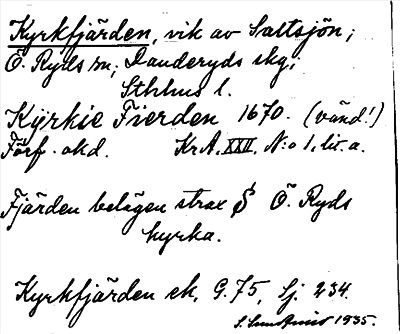 Kyrkfjärden, vik av Saltsjön;
Ö. Ryds sn; Danderyds skg;
Sthlms l.
Kÿrkie Fierden 1670. (vänd!)
Förf. okd. Kr.A. XXII. N:o 1, lit. a.
Fjärden belägen strax S Ö. Ryds
kyrka.
Kyrkfjärden ek. G. 75, Sj. 234.
S. 1935.